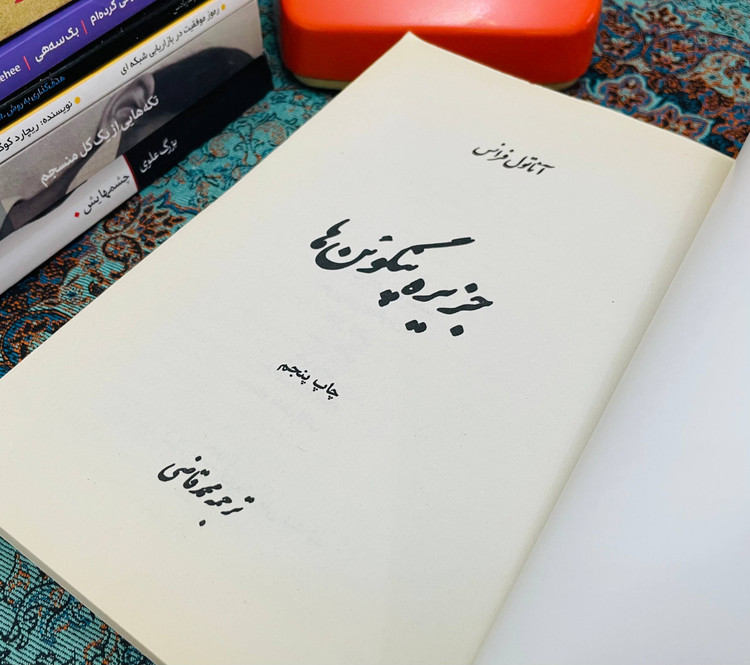 آناتول فرانس
جزیره پنگوئن‌ها
چاپ پنجم
ترجمه محمد قاضی
کرده‌ام | بک سه‌هی | ehee
رموز موفقیت در بازاریابی شبکه ای
نویسنده: ریچارد
تکه‌هایی از یک کل منسجم
بزرگ علوی
چشمهایش